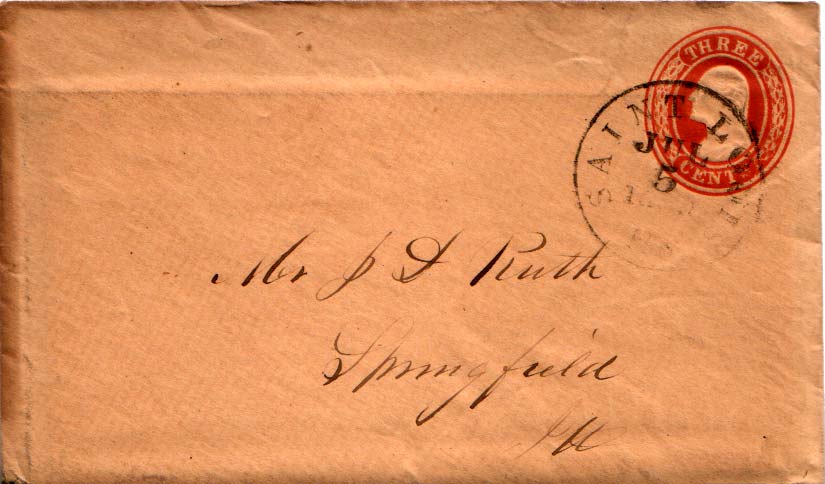 THREE
CENTS
SAINT LOUIS
JUL
5
Mr J D Ruth
Springfield
Ill